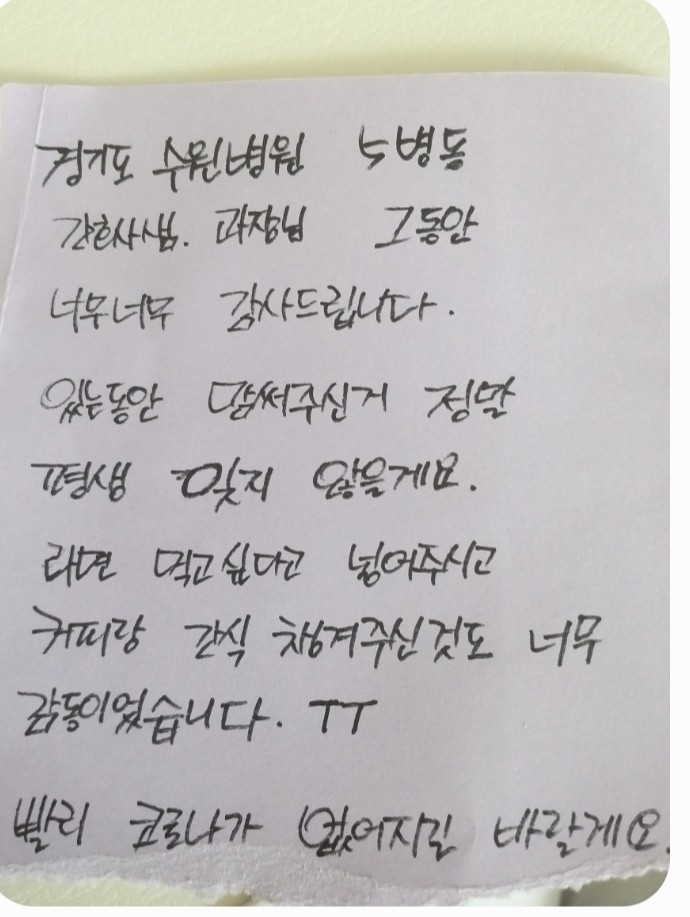 경기도 수원병원 5병동
간호사샘. 과장님 그동안
너무너무 감사드립니다.
있는동안 맘써주신거 정말
평생 잊지 않을게요.
라면 먹고싶다고 넣어주시고
커피랑 간식 챙겨주신것도 너무
감동이었습니다. TT
빨리 코로나가 없어지길 바랄게요.